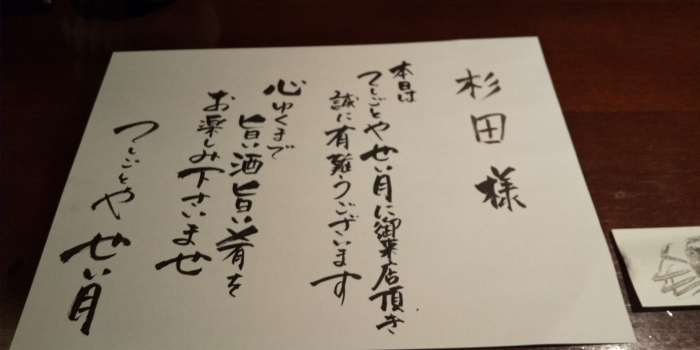 杉田様
本日は
つしごとやせい月に御来店頂き
誠に有難うございます
心ゆくまで
旨い酒旨い肴を
お楽しみ下さいませ
つしごとやせい月